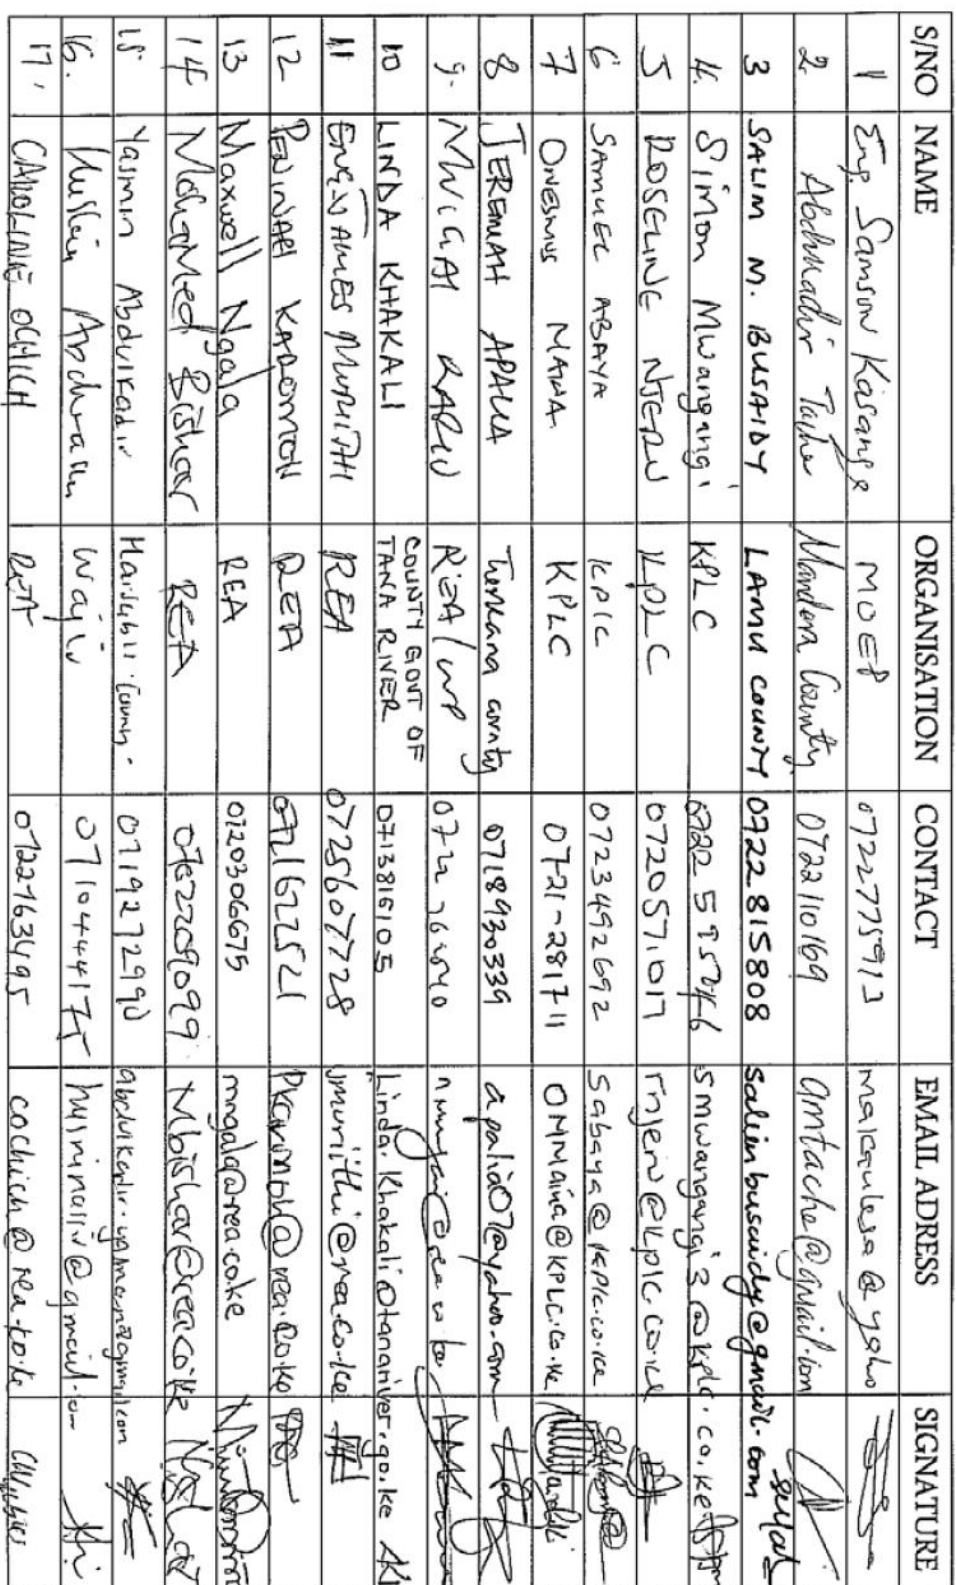 S/NO NAME ORGANISATION CONTACT EMAIL ADRESS SIGNATURE
1 Eng. Samson Kasange MOEP 0722775913 @yaho
2 Abdikadir Tache Mandera County 0722110169 amtache@gmail.com
3 SALIM M. BUSAIDY LAMU COUNTY 0722815808 salimbusaidy@gmail.com
4. Simon Mwangangi KPLC 0722 smwangangi3@kplc.co.ke
5 ROSELINE NJERU KPLC 0720571017 rnjeru@kplc.co.ke
6 SAMUEL ABAYA KPLC 0723492692 sabaya@kplc.co.ke
7 ONESMUS MAINA KPLC 0721-281711 OMMaina@KPLC.co.ke
8 JEREMIAH APALIA Turkana county 0718930339 apalia07@yahoo.com
9. MWIGAI REA/
10 LINDA KHAKALI COUNTY GOVT OF
TANA RIVER 0713816105 Linda.Khakali@tanariver.go.ke
11 ENG. JAMES MURIITHI REA 0725607728 jmuriithi@rea.co.ke
12 PENINAH KAROMOH REA 0721622521 @rea.co.ke
13 Maxwell Ngala REA 0720306675 mngala@rea.co.ke
14 Mohamed Bishar REA Mbishar@rea.co.ke
15 Yasmin Abdikadir County. 0719272990
16. Wajir 0710444175 @gmail.com
17. CAROLINE OCHICH REA 0722763495 cochich@rea.co.ke